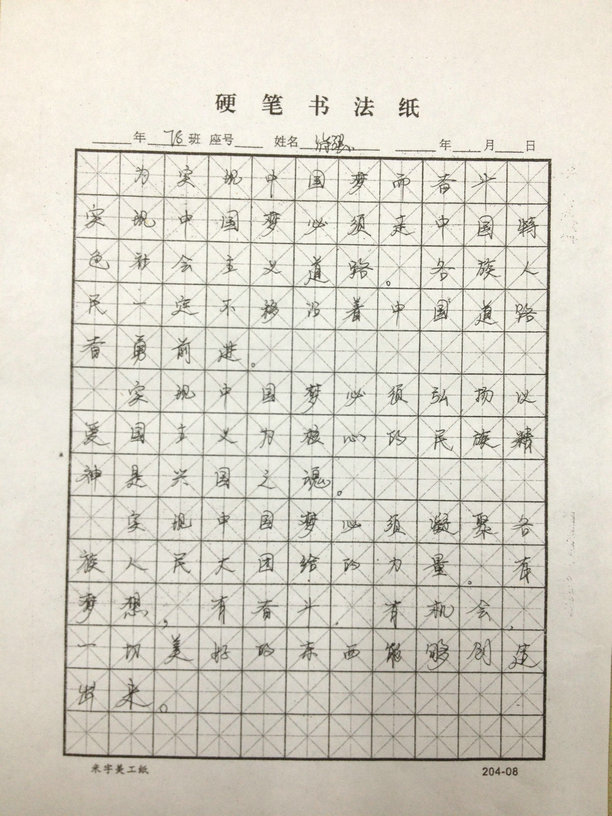 硬笔书法纸
年 78 班 座号 姓名 年 月 日
为实现中国梦而奋斗
实现中国梦必须走中国特
色社会主义道路。各族人
民一定不移沿着中国道路
奋勇前进。
实现中国梦必须弘扬以
爱国主义为核心的民族精
神是兴国之魂。
实现中国梦必须凝聚各
族人民大团结的力量。有
梦想,有奋斗.有机会,
一切美好的东西能够创造
出来。
米字美工纸 204-08